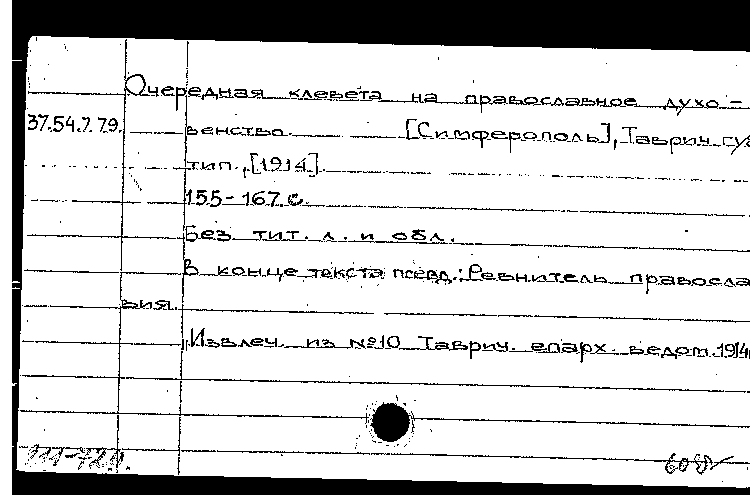 Очередная клевета на православное духо-
37.54.7.79. венство. [Симферополь], Таврич. губ
тип., [1914].
155-167 с.
Без тит. л. и обл.
В конце текста псевд.: Ревнитель правосла
вия.
Извлеч. из №10 Таврич. епарх. ведом. 1914